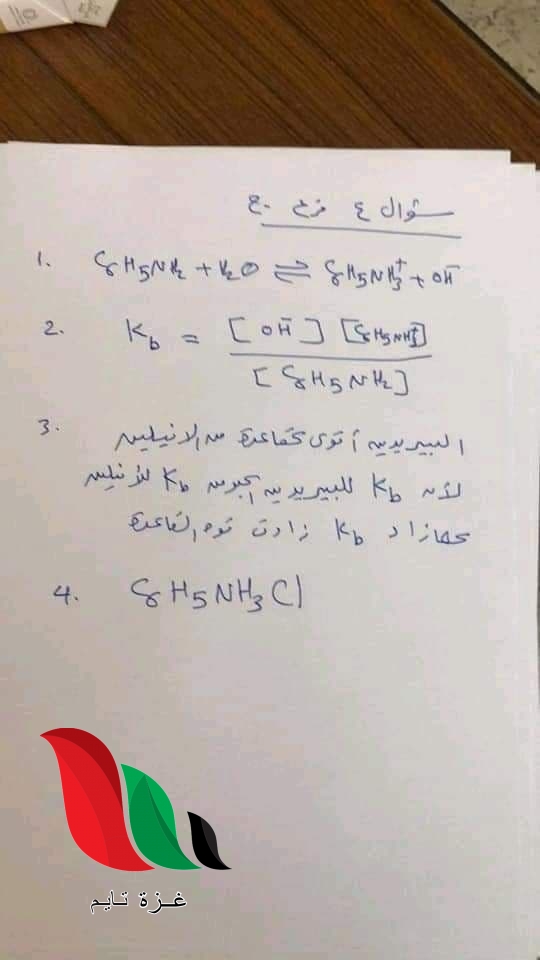 سؤال ع فرع ج.
1. C6H5NH2 + H2O ⇌ C6H5NH3+ + OH-
2. Kb = [OH-] [C6H5NH3+]
[C6H5NH2]
3. البيريدين أقوى كقاعدة من الانيلين
لأن Kb للبيريدين أكبر من Kb للأنيلين
كلما زاد Kb زادت قوة القاعدة
4. C6H5NH3Cl
غزة تايم